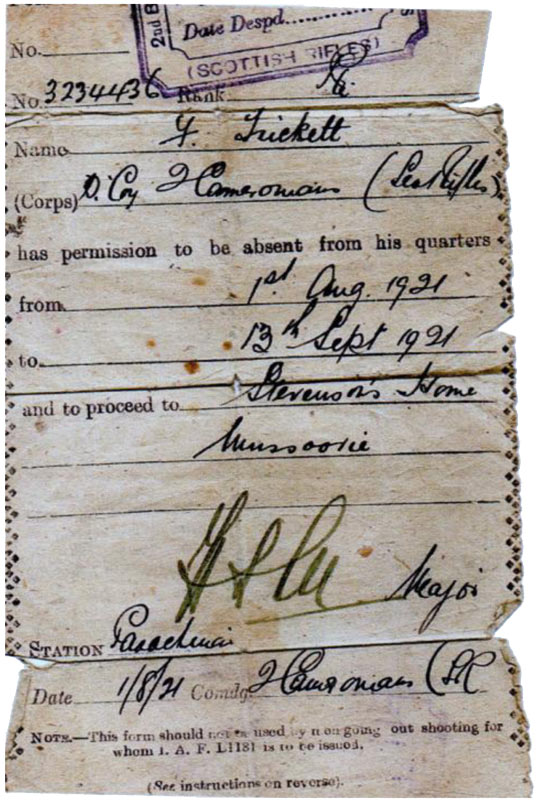 2nd B
Date Despd.
(SCOTTISH RIFLES)
No.
No. 3234436 Rank
Name F. Trickett
(Corps) D. Coy 2 Cameronians (Scot Rifles)
has permission to be absent from his quarters
from 1st. Aug. 1921
to 13th Sept 1921
and to proceed to Stevenson's Home
Mussoorie
Major
STATION Parachinar
Date 1/8/21 Comdg. 2 Cameronians (SR
NOTE.—This form should not be used by men going out shooting for
whom I. A. F. L1181 is to be issued.
(See instructions on reverse).